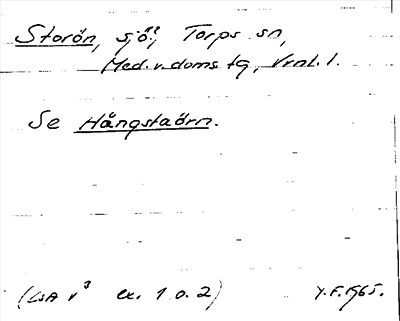 Storön, sjö?, Torps sn,
Med. v. doms tg, Vrml. l.
Se Hångstaörn.
(LSA V³ ex. 1 o. 2) Y.F. 1965.